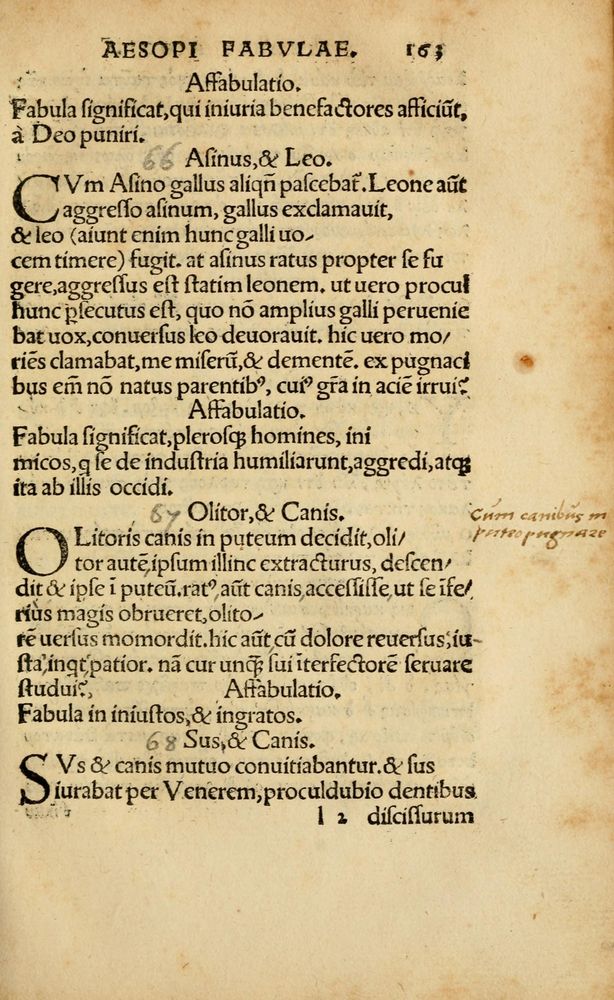 AESOPI FABVLAE. 163
Affabulatio.
Fabula ſignificat, qui iniuria benefactores afficiũt,
à Deo puniri.
66 Aſinus, & Leo.
CVm Aſino gallus aliqñ paſcebat̃. Leone aũt
aggreſſo aſinum, gallus exclamauit,
& leo (aiunt enim hunc galli uo-
cem timere) fugit. at aſinus ratus propter ſe fu
gere, aggreſſus eſt ſtatim leonem. ut uero procul
hunc ꝑſecutus eſt, quo nõ amplius galli peruenie
bat uox, conuerſus leo deuorauit. hic uero mo/
riẽs clamabat, me miſerũ, & dementẽ. ex pugnaci
bus em̃ nõ natus parentibꝰ, cuiꝰ gr̃a in aciẽ irrui?
Affabulatio.
Fabula ſignificat, pleroſq; homines, ini
micos, q ſe de induſtria humiliarunt, aggredi, atq;
ita ab illis occidi.
67 Olitor, & Canis.
Cum canibus in
puteo pugnare
OLitoris canis in puteum decidit, oli/
tor autẽ, ipſum illinc extracturus, deſcen/
dit & ipſe ĩ puteũ. ratꝰ, aũt canis, acceſſiſſe, ut ſe ĩfe/
rius magis obrueret, olito-
rẽ uerſus momordit. hic aũt, cũ dolore reuerſus, iu-
ſta, inqt, patior. nã cur unq; ſui ĩterfectorẽ ſeruare
ſtudui?, Affabulatio.
Fabula in iniuſtos, & ingratos.
68 Sus, & Canis.
SVs & canis mutuo conuitiabantur. & ſus
iurabat per Venerem, proculdubio dentibus
l 2 diſciſſurum